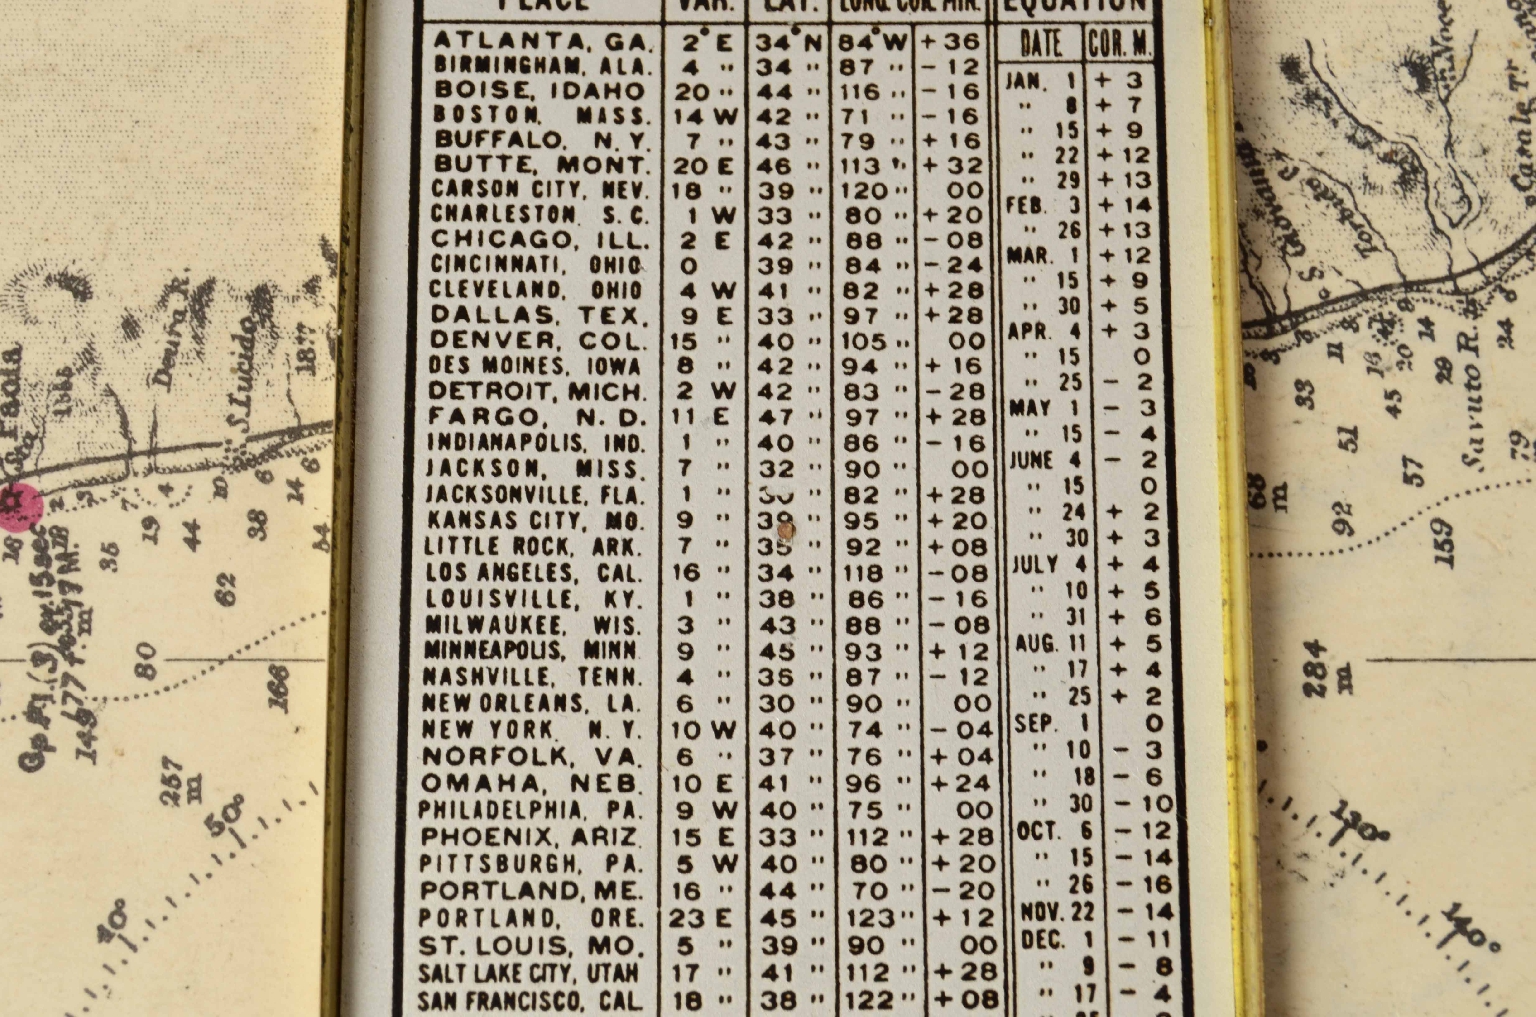 PLACE VAR. LAT. LONG. COR. MIN. EQUATION
DATE COR. M.
ATLANTA, GA. 2° E 34° N 84° W + 36
BIRMINGHAM, ALA. 4 " 34 " 87 " - 12
BOISE, IDAHO 20 " 44 " 116 " - 16
BOSTON, MASS. 14 W 42 " 71 " - 16
BUFFALO, N. Y. 7 " 43 " 79 " + 16
BUTTE, MONT. 20 E 46 " 113 " + 32
CARSON CITY, NEV. 18 " 39 " 120 " 00
CHARLESTON, S. C. 1 W 33 " 80 " + 20
CHICAGO, ILL. 2 E 42 " 88 " - 08
CINCINNATI, OHIO 0 39 " 84 " - 24
CLEVELAND, OHIO 4 W 41 " 82 " + 28
DALLAS, TEX. 9 E 33 " 97 " + 28
DENVER, COL. 15 " 40 " 105 " 00
DES MOINES, IOWA 8 " 42 " 94 " + 16
DETROIT, MICH. 2 W 42 " 83 " - 28
FARGO, N. D. 11 E 47 " 97 " + 28
INDIANAPOLIS, IND. 1 " 40 " 86 " - 16
JACKSON, MISS. 7 " 32 " 90 " 00
JACKSONVILLE, FLA. 1 " " 82 " + 28
KANSAS CITY, MO. 9 " 39 " 95 " + 20
LITTLE ROCK, ARK. 7 " 35 " 92 " + 08
LOS ANGELES, CAL. 16 " 34 " 118 " - 08
LOUISVILLE, KY. 1 " 38 " 86 " - 16
MILWAUKEE, WIS. 3 " 43 " 88 " - 08
MINNEAPOLIS, MINN. 9 " 45 " 93 " + 12
NASHVILLE, TENN. 4 " 36 " 87 " - 12
NEW ORLEANS, LA. 6 " 30 " 90 " 00
NEW YORK, N. Y. 10 W 40 " 74 " - 04
NORFOLK, VA. 6 " 37 " 76 " + 04
OMAHA, NEB. 10 E 41 " 96 " + 24
PHILADELPHIA, PA. 9 W 40 " 75 " 00
PHOENIX, ARIZ 15 E 33 " 112 " + 28
PITTSBURGH, PA. 5 W 40 " 80 " + 20
PORTLAND, ME. 16 " 44 " 70 " - 20
PORTLAND, ORE. 23 E 45 " 123 " + 12
ST. LOUIS, MO. 5 " 39 " 90 " 00
SALT LAKE CITY, UTAH 17 " 41 " 112 " + 28
SAN FRANCISCO, CAL. 18 " 38 " 122 " + 08
JAN. 1 + 3
" 8 + 7
" 15 + 9
" 22 + 12
" 29 + 13
FEB. 3 + 14
" 26 + 13
MAR. 1 + 12
" 15 + 9
" 30 + 5
APR. 4 + 3
" 15 0
" 25 - 2
MAY 1 - 3
" 15 - 4
JUNE 4 - 2
" 15 0
" 24 + 2
" 30 + 3
JULY 4 + 4
" 10 + 5
" 31 + 6
AUG. 11 + 5
" 17 + 4
" 25 + 2
SEP. 1 0
" 10 - 3
" 18 - 6
" 30 - 10
OCT. 6 - 12
" 15 - 14
" 26 - 16
NOV. 22 - 14
DEC. 1 - 11
" 9 - 8
" 17 - 4
Paola
Deura R.
S. Lucido
1877
2
3
7
4
10
6
14
6
16
35
19
44
38
84
62
80
166
149
257
m
50°
Savuto R.
11
14
24
33
45
20
29
51
57
79
68
m
92
159
284
m
130°
140°